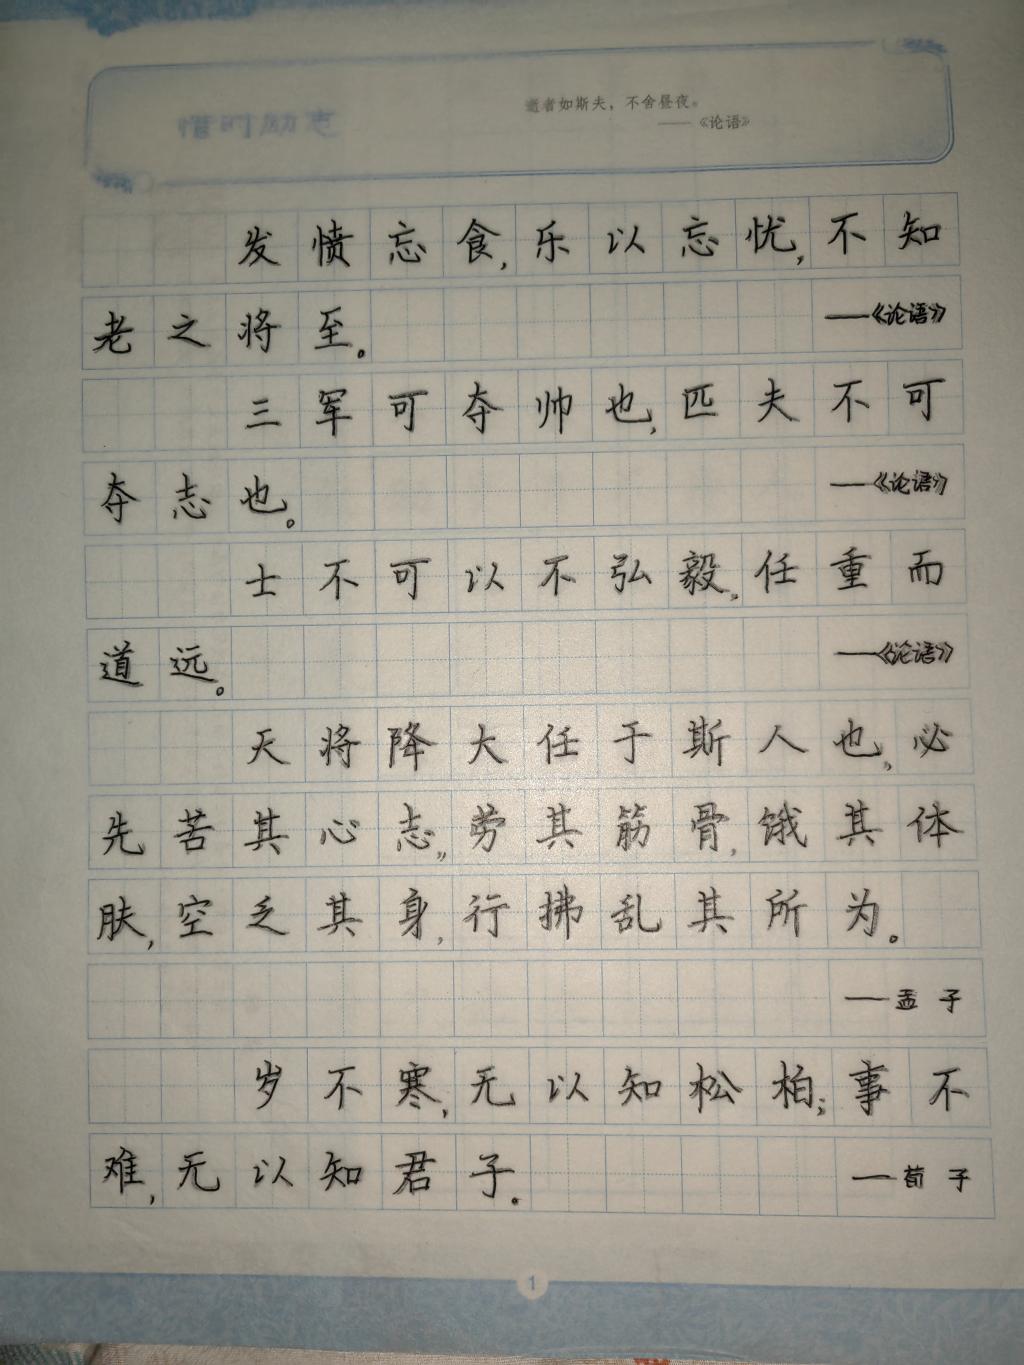 惜时励志
逝者如斯夫，不舍昼夜。
——《论语》
发愤忘食，乐以忘忧，不知
老之将至。 ——《论语》
三军可夺帅也，匹夫不可
夺志也。 ——《论语》
士不可以不弘毅，任重而
道远。 ——《论语》
天将降大任于斯人也，必
先苦其心志，劳其筋骨，饿其体
肤，空乏其身，行拂乱其所为。
——孟子
岁不寒，无以知松柏；事不
难，无以知君子。 ——荀子
1